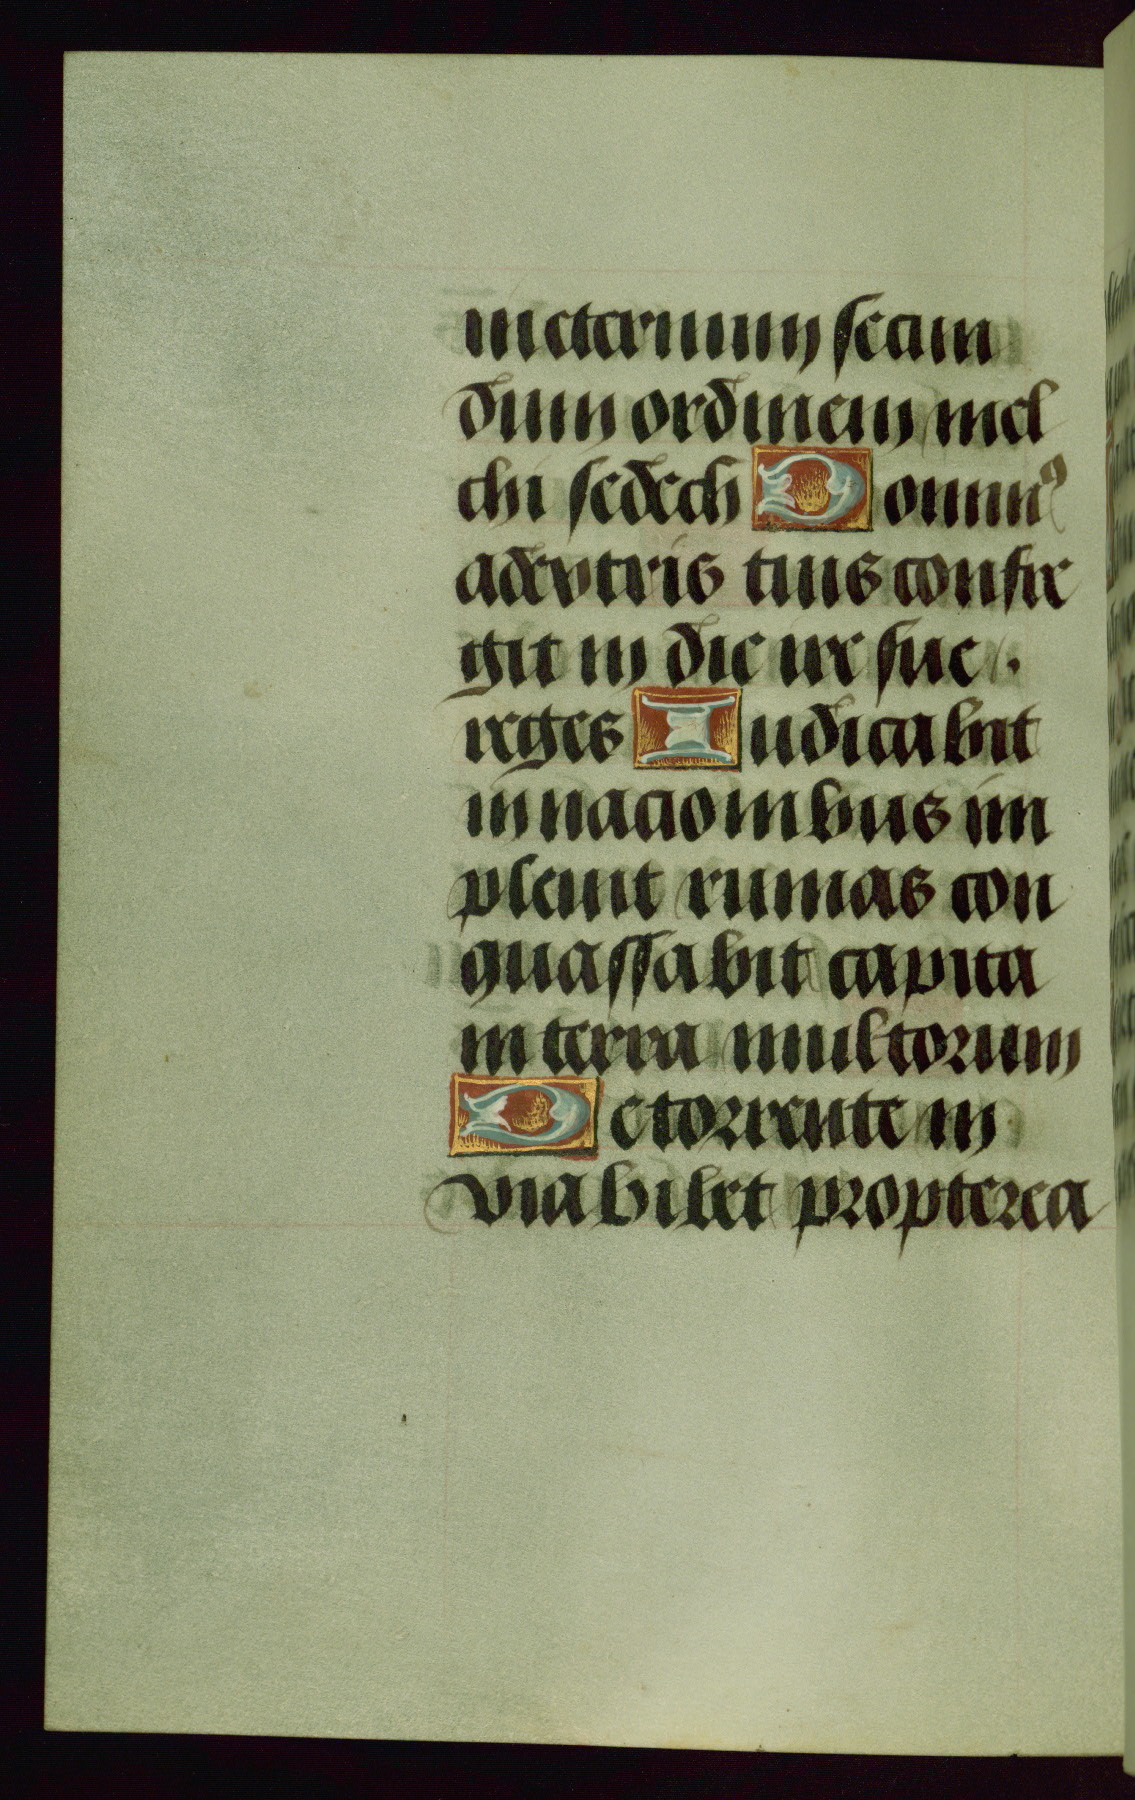 in eternum secun
dum ordinem mel
chi sedech Domin⁹
adextris tuis confre
git in die ire sue.
reges Iudicabit
in nacionibus im
pleuit ruinas con
quassabit capita
in terra multorum
De torrente in
via bibet propterea